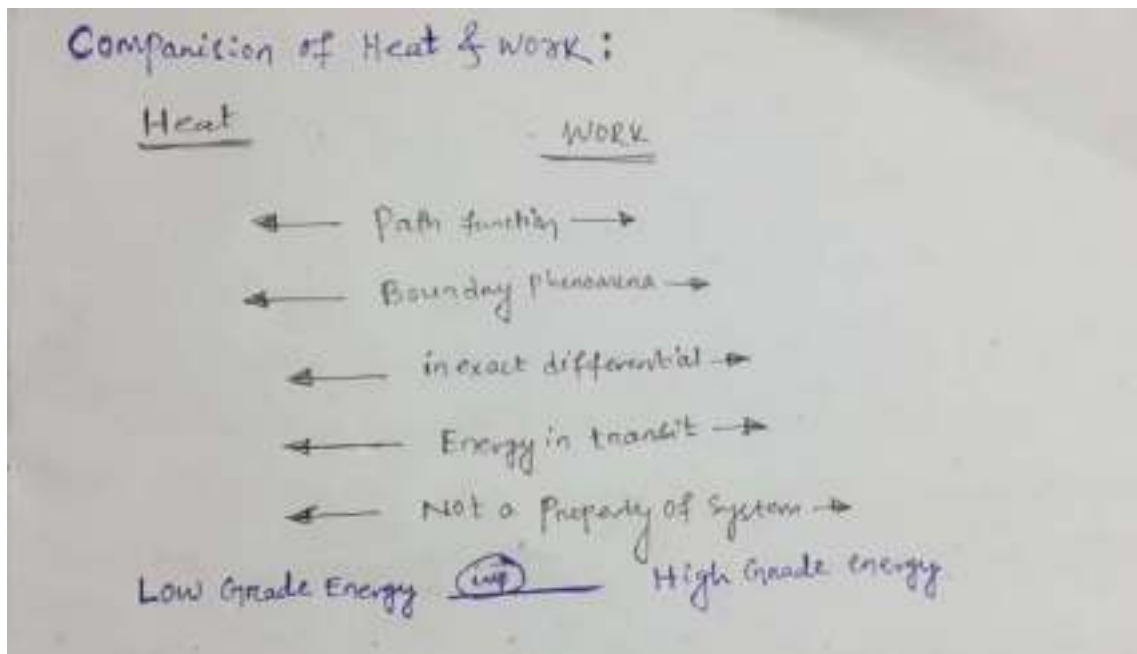 Companision of Heat & work :
Heat WORK
Path function
Boundary phenomena
in exact differential
Energy in transit
Not a Property of System
Low Grade Energy imp High Grade energy